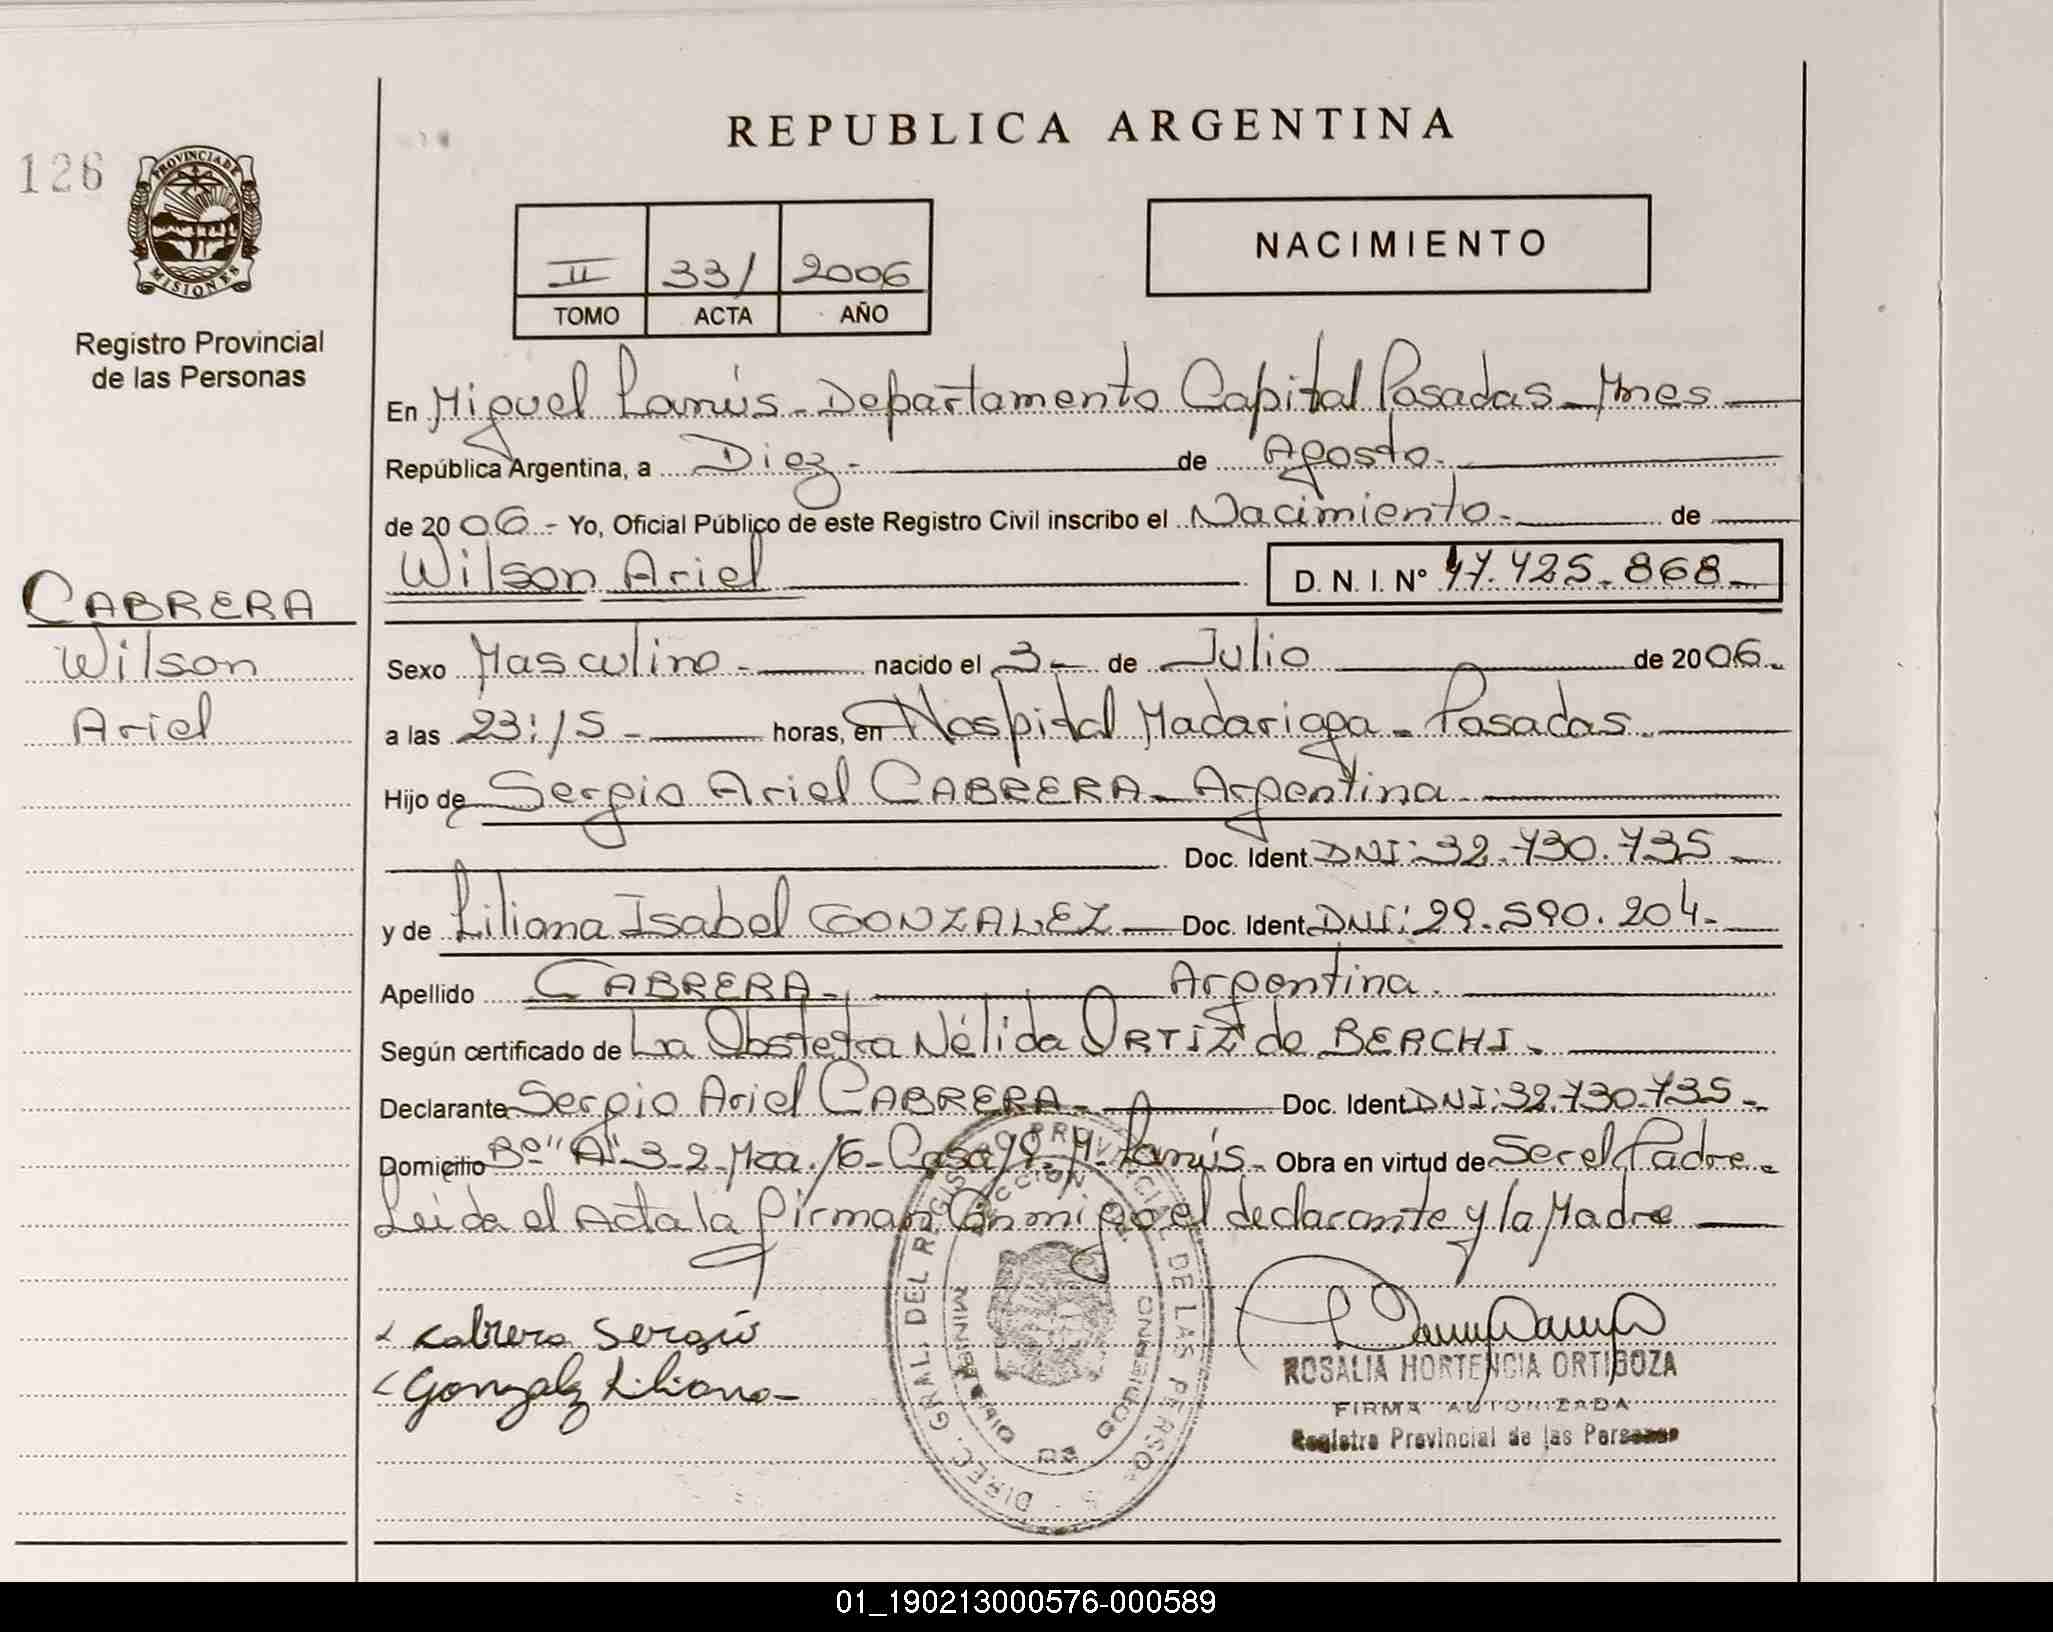 REPUBLICA ARGENTINA
126
PROVINCIA DE MISIONES
Registro Provincial
de las Personas
II 331 2006
TOMO ACTA AÑO
NACIMIENTO
En Miguel Lanús - Departamento Capital Posadas - Mnes
República Argentina, a Diez - de Agosto -
de 2006 - Yo, Oficial Público de este Registro Civil inscribo el Nacimiento - de
Wilson Ariel D. N. I. Nº 47.425.868 -
CABRERA
Wilson
Ariel
Sexo Masculino - nacido el 3 - de Julio de 2006 -
a las 23:15 - horas, en Hospital Madariaga - Posadas -
Hijo de Sergio Ariel CABRERA - Argentina
Doc. Ident. DNI: 32.730.735 -
y de Liliana Isabel GONZALEZ - Doc. Ident. DNI: 29.590.204 -
Apellido CABRERA - Argentina.
Según certificado de La Obstetra Nélida ORTIZ de BERCHI -
Declarante Sergio Ariel CABRERA - Doc. Ident. DNI: 32.730.735 -
Domicilio Bº "A" 3-2 Mza. 16 - Casa M. Lanús - Obra en virtud de Ser el Padre -
Leída el Acta la firman Conmigo el declarante y la Madre
Cabrera Sergio
Gonzalez Liliana
DIREC. GRAL. DEL REGISTRO PROVINCIAL DE LAS PERSONAS
MINISTERIO DE GOBIERNO
ROSALIA HORTENCIA ORTIGOZA
FIRMA AUTORIZADA
Registro Provincial de las Personas
01_190213000576-000589